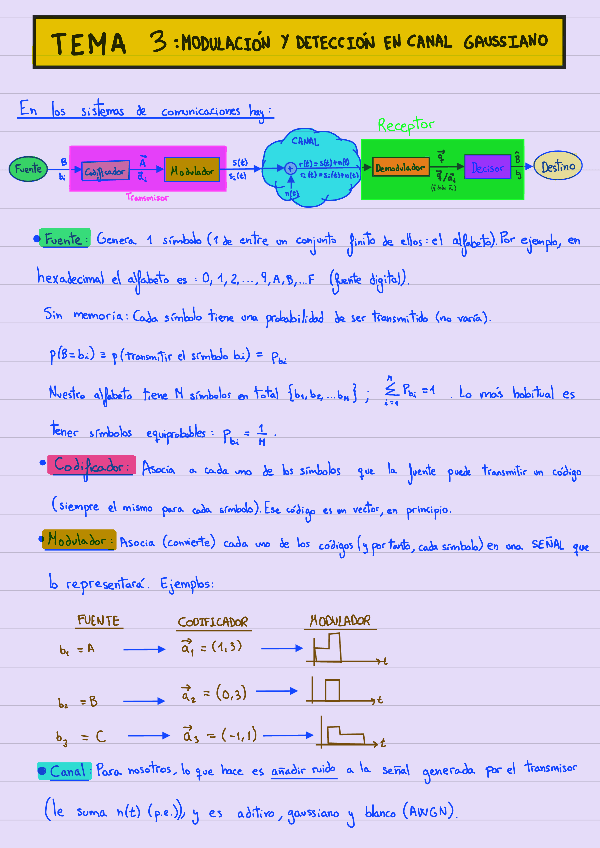 TEMA 3: MODULACIÓN Y DETECCIÓN EN CANAL GAUSSIANO
En los sistemas de comunicaciones hay:
Receptor
CANAL
Fuente B bi Codificador A⃗ a⃗i Modulador s(t) si(t) r(t)=s(t)+n(t) ri(t)=si(t)+n(t) Demodulador q⃗ q⃗/a⃗i Decisor Destino
n(t)
Transmisor
• Fuente: Genera 1 símbolo (1 de entre un conjunto finito de ellos: el alfabeto). Por ejemplo, en
hexadecimal el alfabeto es: 0, 1, 2, ..., 9, A, B, ... F (fuente digital).
Sin memoria: Cada símbolo tiene una probabilidad de ser transmitido (no varía).
p(B=bi) ≡ p(transmitir el símbolo bi) = Pbi
Nuestro alfabeto tiene M símbolos en total {b1, b2, ... bM}; ∑ Pbi = 1. Lo más habitual es
tener símbolos equiprobables: Pbi = 1/M.
• Codificador: Asocia a cada uno de los símbolos que la fuente puede transmitir un código
(siempre el mismo para cada símbolo). Ese código es un vector, en principio.
• Modulador: Asocia (convierte) cada uno de los códigos (y por tanto, cada símbolo) en una SEÑAL que
lo representará. Ejemplos:
FUENTE CODIFICADOR MODULADOR
b1 = A a⃗1 = (1,3) t
b2 = B a⃗2 = (0,3) t
b3 = C a⃗3 = (-1,1) t
• Canal: Para nosotros, lo que hace es añadir ruido a la señal generada por el transmisor
(le suma n(t) (p.e.)), y es aditivo, gaussiano y blanco (AWGN).